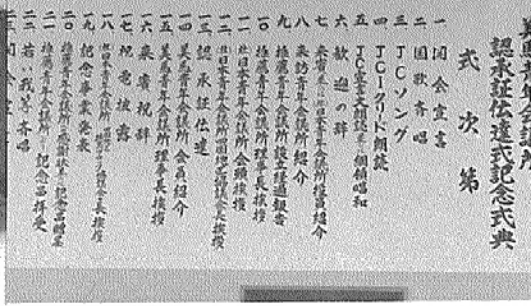 青年会議所
認承証伝達式記念式典
式次第
一 開会宣言
二 国歌斉唱
三 JCソング
四 JCクリード朗読
五 JC宣言文朗読並に綱領唱和
六 歓迎の辞
七 来賓
八 来訪青年会議所紹介
九 推薦青年会議所設立経過報告
一〇 推薦青年会議所理事長挨拶
一一 日本青年会議所会頭挨拶
一二 日本青年会議所
一三 認承証伝達
一四 美幌青年会議所会員紹介
一五 美幌青年会議所理事長挨拶
一六 来賓祝辞
一七 祝電披露
一八 日本青年会議所
一九 記念事業発表
二〇 推薦青年会議所へ感謝状並に記念品贈呈
二一 推薦青年会議所より記念品拝受
二二 若い我等斉唱
二三 閉会宣言